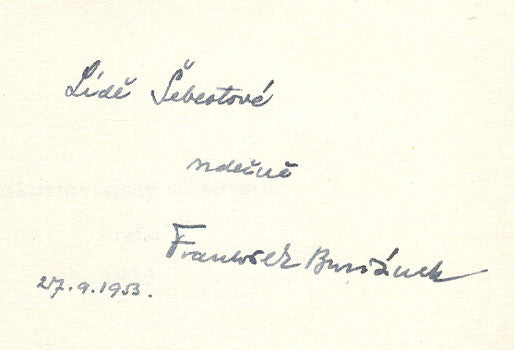 Lídě Šebestové
srdečně
František Buriánek
27.9.1953.